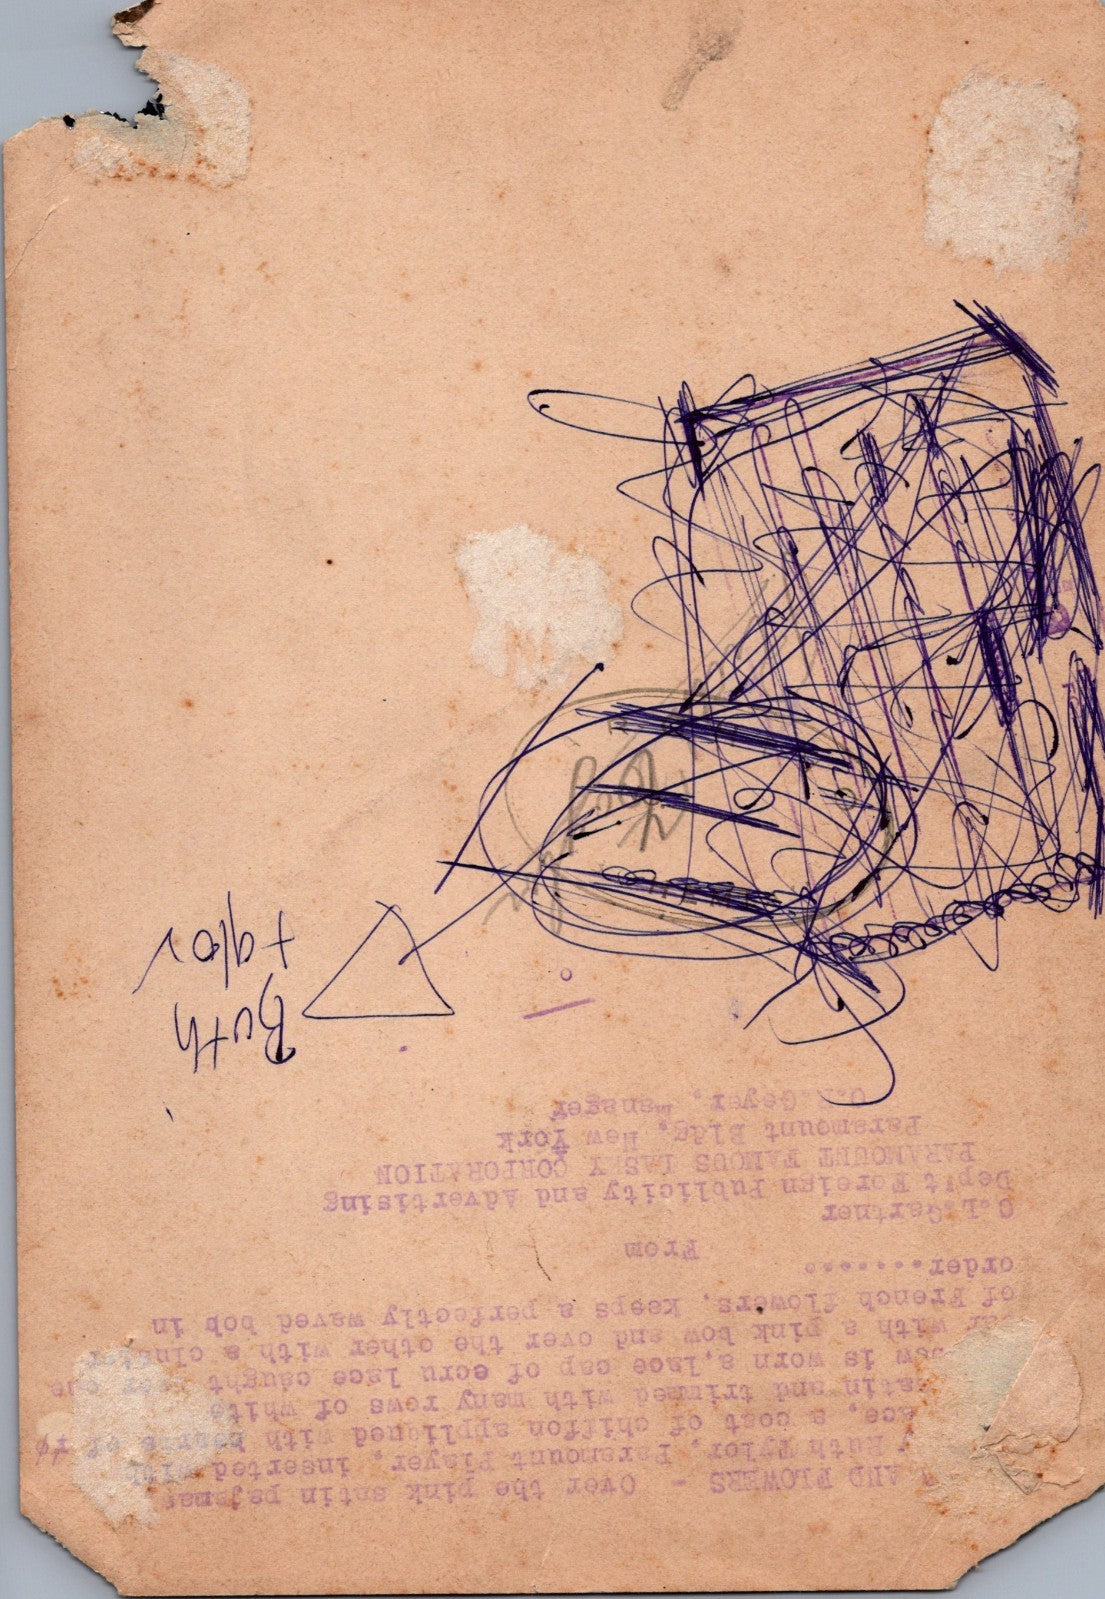 AND FLOWERS - Over the pink satin pajamas
Ruth Tylor, Paramount Player, inserted with
ace, a coat of chiffon appliqued with hearts of
satin and trimmed with many rows of white
is worn a lace cap of ecru lace caught over one
with a pink bow and over the other with a cluster
of French flowers, keeps a perfectly waved bob in
order........
From
C.L.Gartner
Dep't Foreign Publicity and Advertising
PARAMOUNT FAMOUS LASKY CORPORATION
Paramount Bldg. New York
Geyer, manager
Ruth